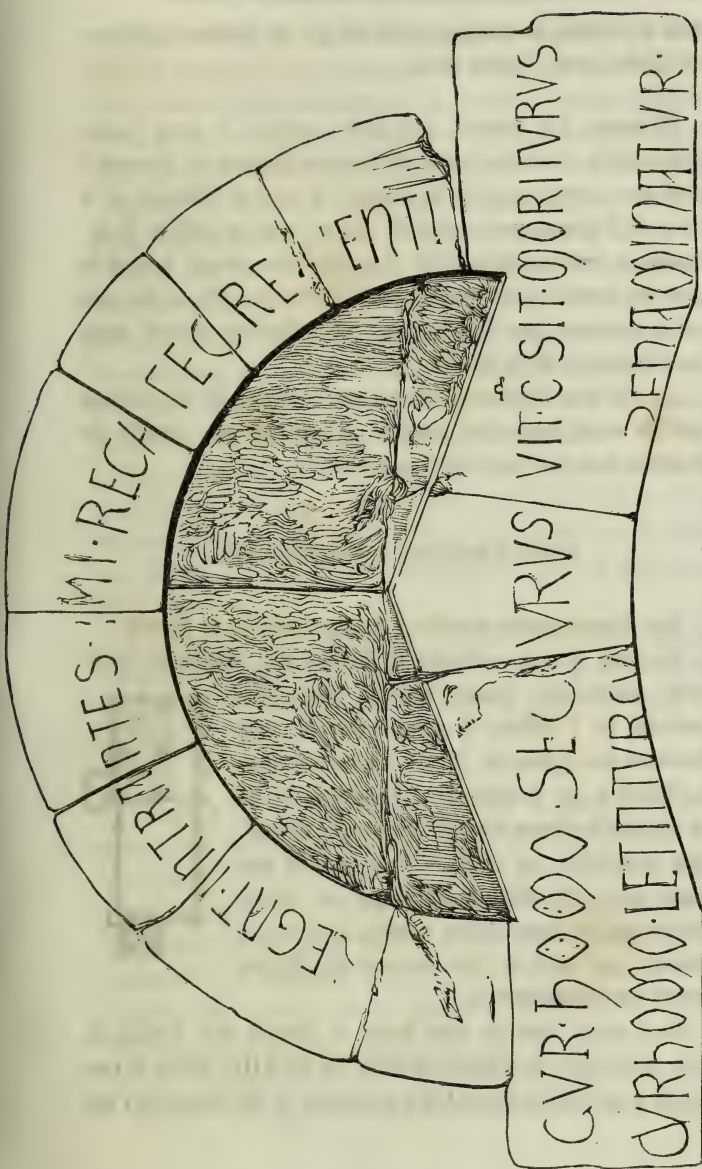 EGAT·INTRANTES· IMI·RECA TECRE· ENTI
CVR·hOMO·SECVRVS VIT·C SIT·MORITVRVS
CVRhOMO·LETATVRCV PENA·MINATVR·